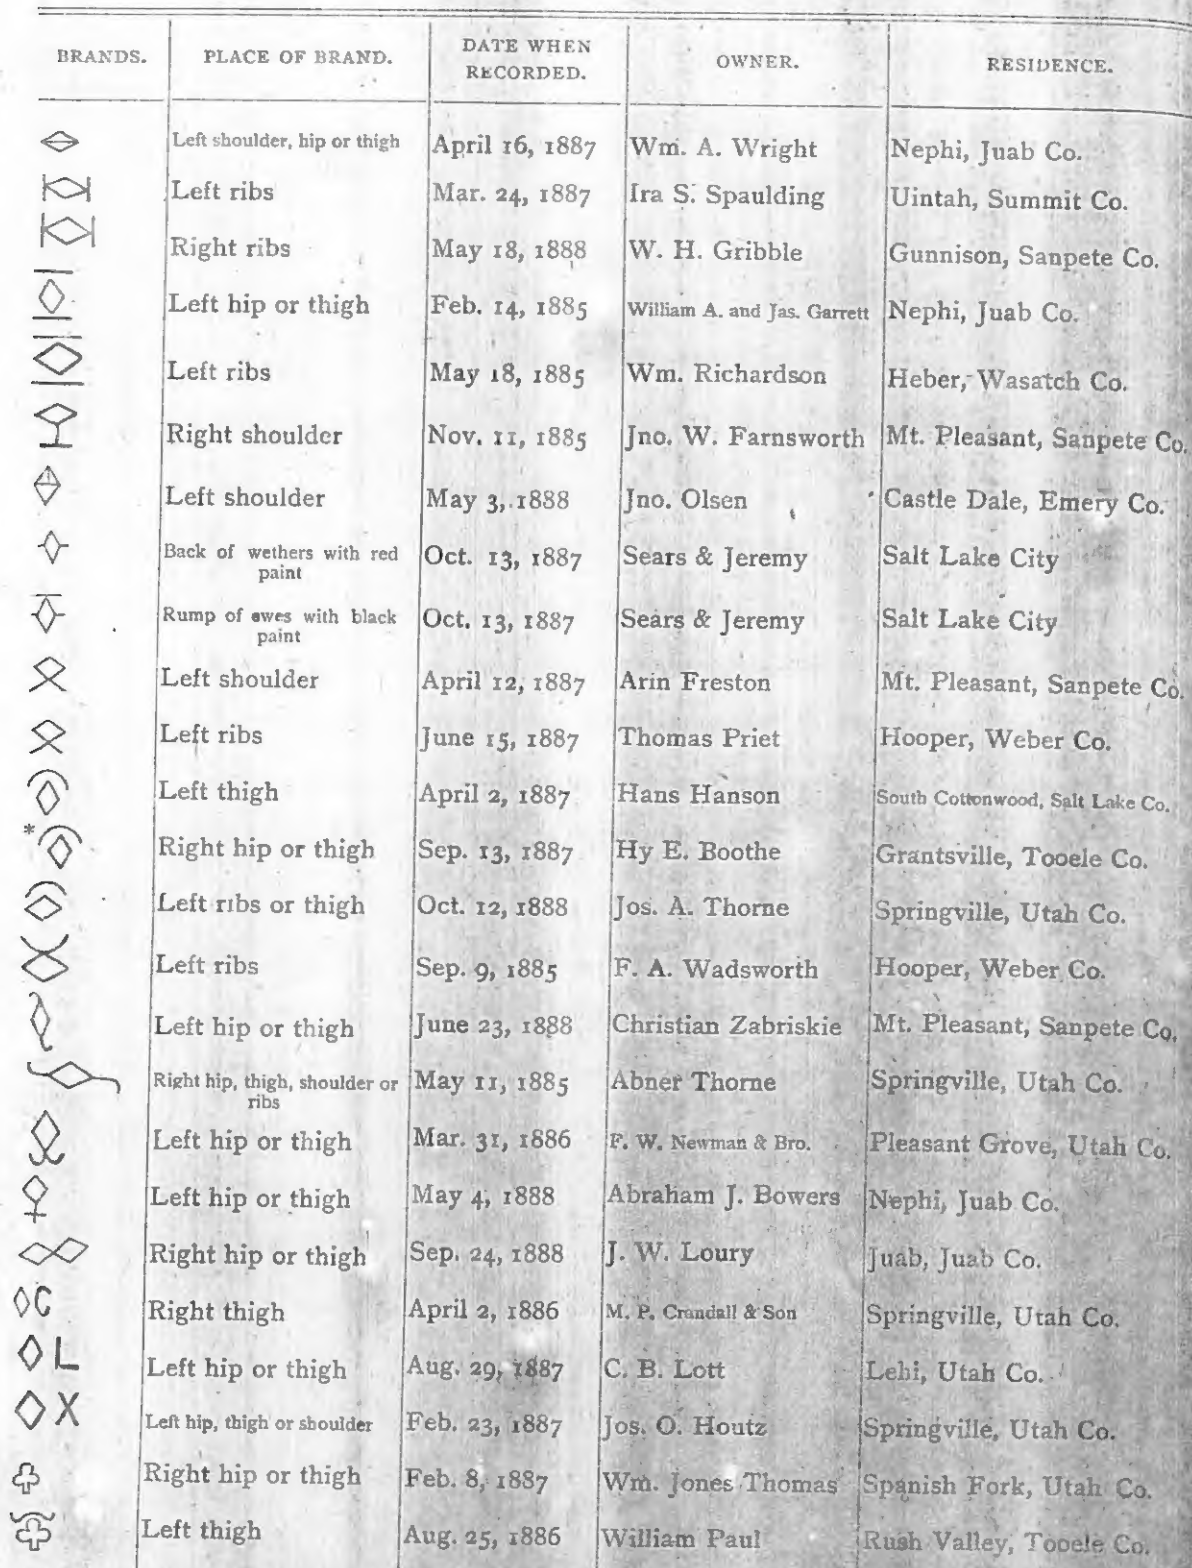 BRANDS. PLACE OF BRAND. DATE WHEN RECORDED. OWNER. RESIDENCE.
Left shoulder, hip or thigh April 16, 1887 Wm. A. Wright Nephi, Juab Co.
Left ribs Mar. 24, 1887 Ira S. Spaulding Uintah, Summit Co.
Right ribs May 18, 1888 W. H. Gribble Gunnison, Sanpete Co.
Left hip or thigh Feb. 14, 1885 William A. and Jas. Garrett Nephi, Juab Co.
Left ribs May 18, 1885 Wm. Richardson Heber, Wasatch Co.
Right shoulder Nov. 11, 1885 Jno. W. Farnsworth Mt. Pleasant, Sanpete Co.
Left shoulder May 3, 1888 Jno. Olsen Castle Dale, Emery Co.
Back of wethers with red paint Oct. 13, 1887 Sears & Jeremy Salt Lake City
Rump of ewes with black paint Oct. 13, 1887 Sears & Jeremy Salt Lake City
Left shoulder April 12, 1887 Arin Freston Mt. Pleasant, Sanpete Co.
Left ribs June 15, 1887 Thomas Priet Hooper, Weber Co.
Left thigh April 2, 1887 Hans Hanson South Cottonwood, Salt Lake Co.
* Right hip or thigh Sep. 13, 1887 Hy E. Boothe Grantsville, Tooele Co.
Left ribs or thigh Oct. 12, 1888 Jos. A. Thorne Springville, Utah Co.
Left ribs Sep. 9, 1885 F. A. Wadsworth Hooper, Weber Co.
Left hip or thigh June 23, 1888 Christian Zabriskie Mt. Pleasant, Sanpete Co.
Right hip, thigh, shoulder or ribs May 11, 1885 Abner Thorne Springville, Utah Co.
Left hip or thigh Mar. 31, 1886 F. W. Newman & Bro. Pleasant Grove, Utah Co.
Left hip or thigh May 4, 1888 Abraham J. Bowers Nephi, Juab Co.
Right hip or thigh Sep. 24, 1888 J. W. Loury Juab, Juab Co.
◊C Right thigh April 2, 1886 M. P. Crandall & Son Springville, Utah Co.
◊ L Left hip or thigh Aug. 29, 1887 C. B. Lott Lehi, Utah Co.
◊ X Left hip, thigh or shoulder Feb. 23, 1887 Jos. O. Houtz Springville, Utah Co.
Right hip or thigh Feb. 8, 1887 Wm. Jones Thomas Spanish Fork, Utah Co.
Left thigh Aug. 25, 1886 William Paul Rush Valley, Tooele Co.